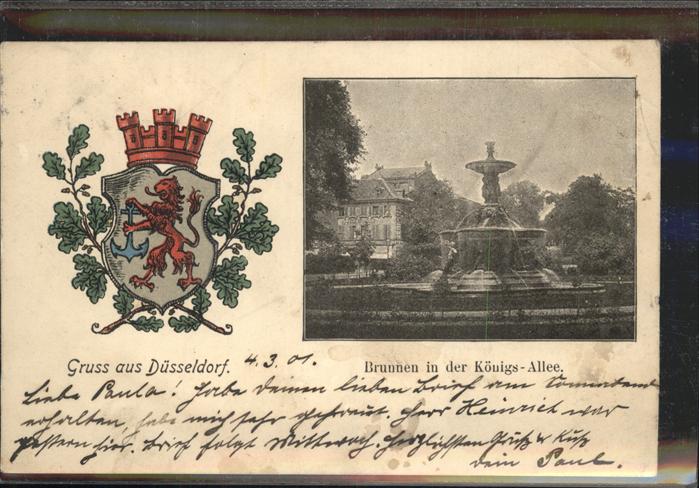 Gruss aus Düsseldorf. 4.3.01.
Brunnen in der Königs-Allee.
Liebe Paula! Habe deinen lieben Brief am Sonnabend
erhalten, habe mich sehr gefreut. Herr Heinrich war
gestern hier. Brief folgt Mittwoch. Herzlichsten Gruß & Kuß
dein Paul.